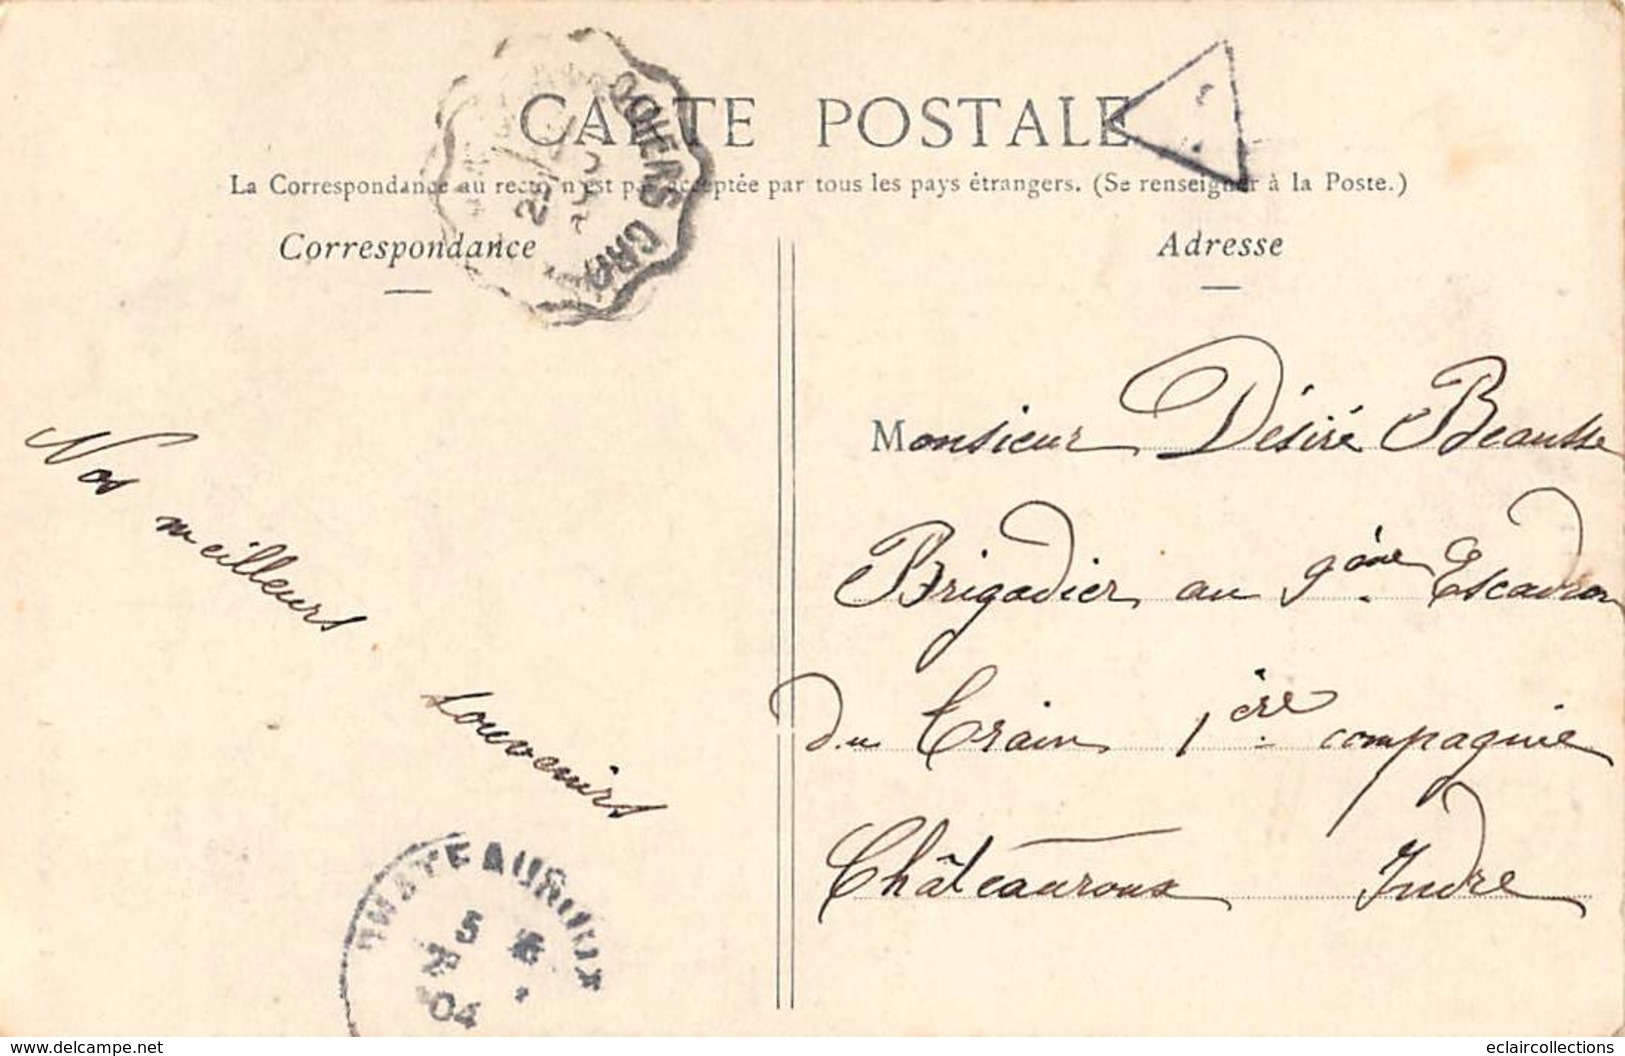 CARTE POSTALE
La Correspondance au recto n'est pas acceptée par tous les pays étrangers. (Se renseigner à la Poste.)
Correspondance
Adresse
Nos
meilleurs
souvenirs
Monsieur Désiré Beausse
Brigadier au 9ème Escadron
du train 1ère compagnie
Châteauroux Indre
CHATEAUROUX
5
04
www.delcampe.net
eclaircollections